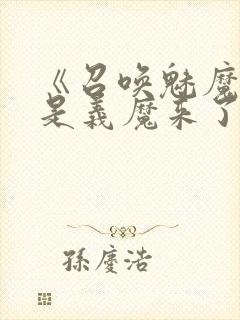 《召唤魅魔
是义魔来了
孫慶浩